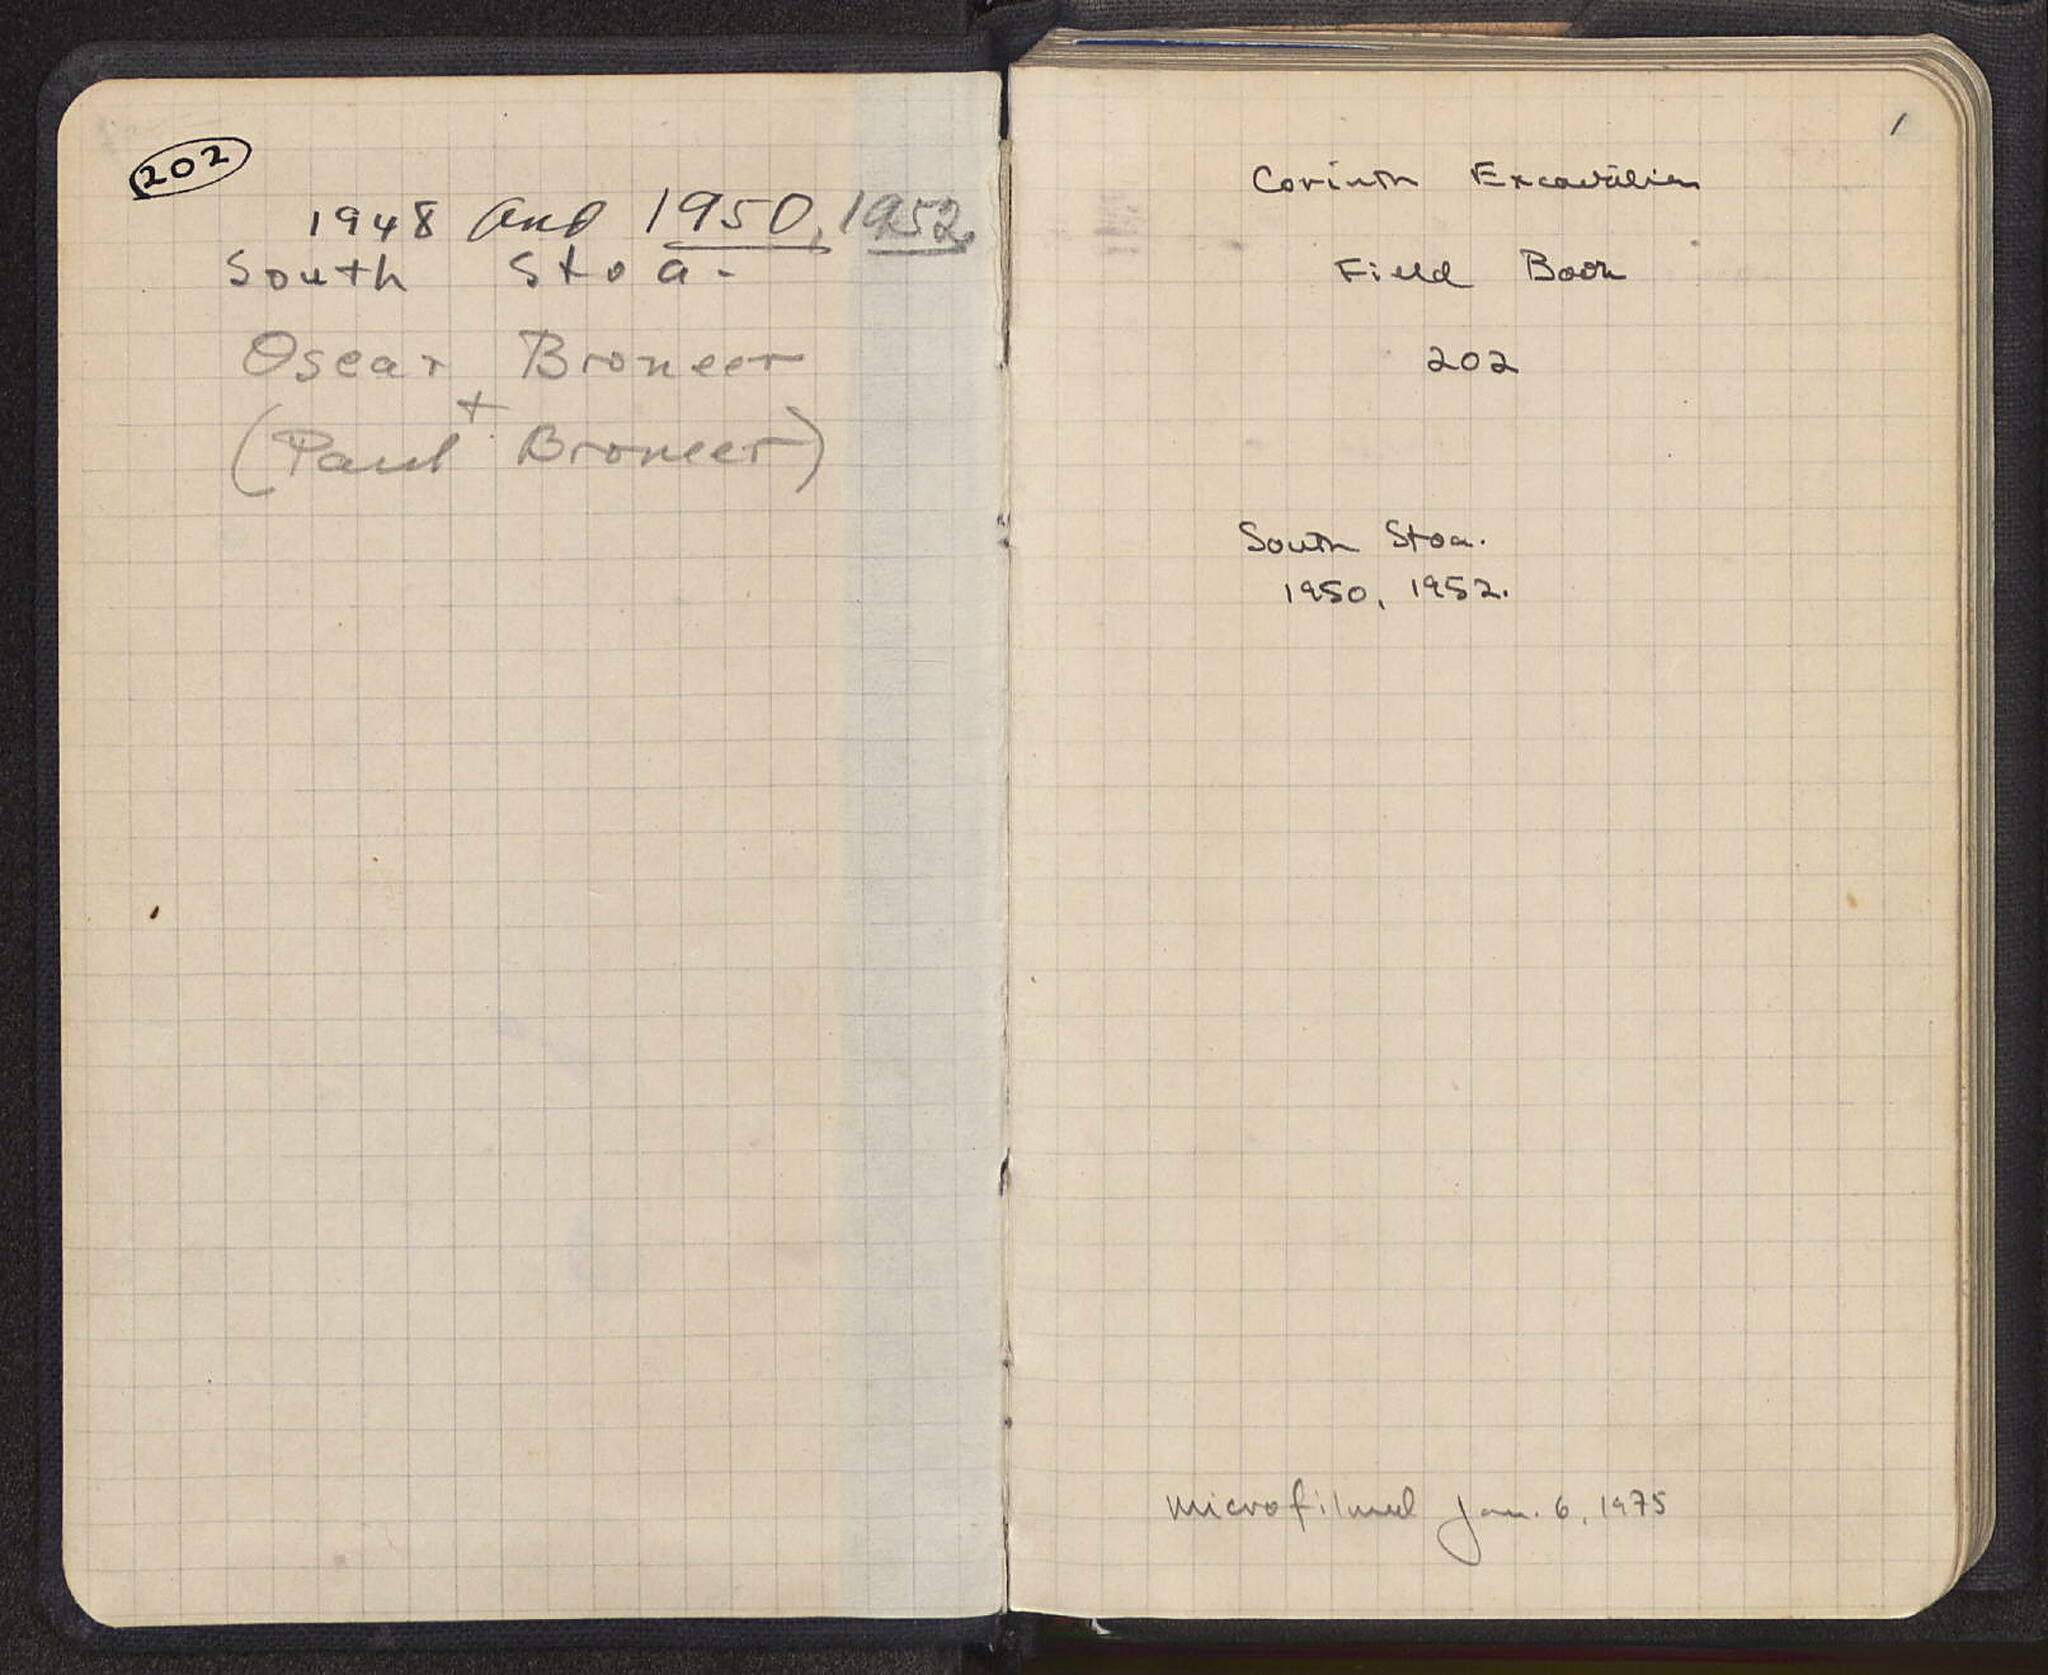 202
1948 and 1950, 1952.
South Stoa.
Oscar Broneer
+
(Paul Broneer)
1
Corinth Excavation
Field Book
202
South Stoa.
1950, 1952.
microfilmed Jan. 6, 1975